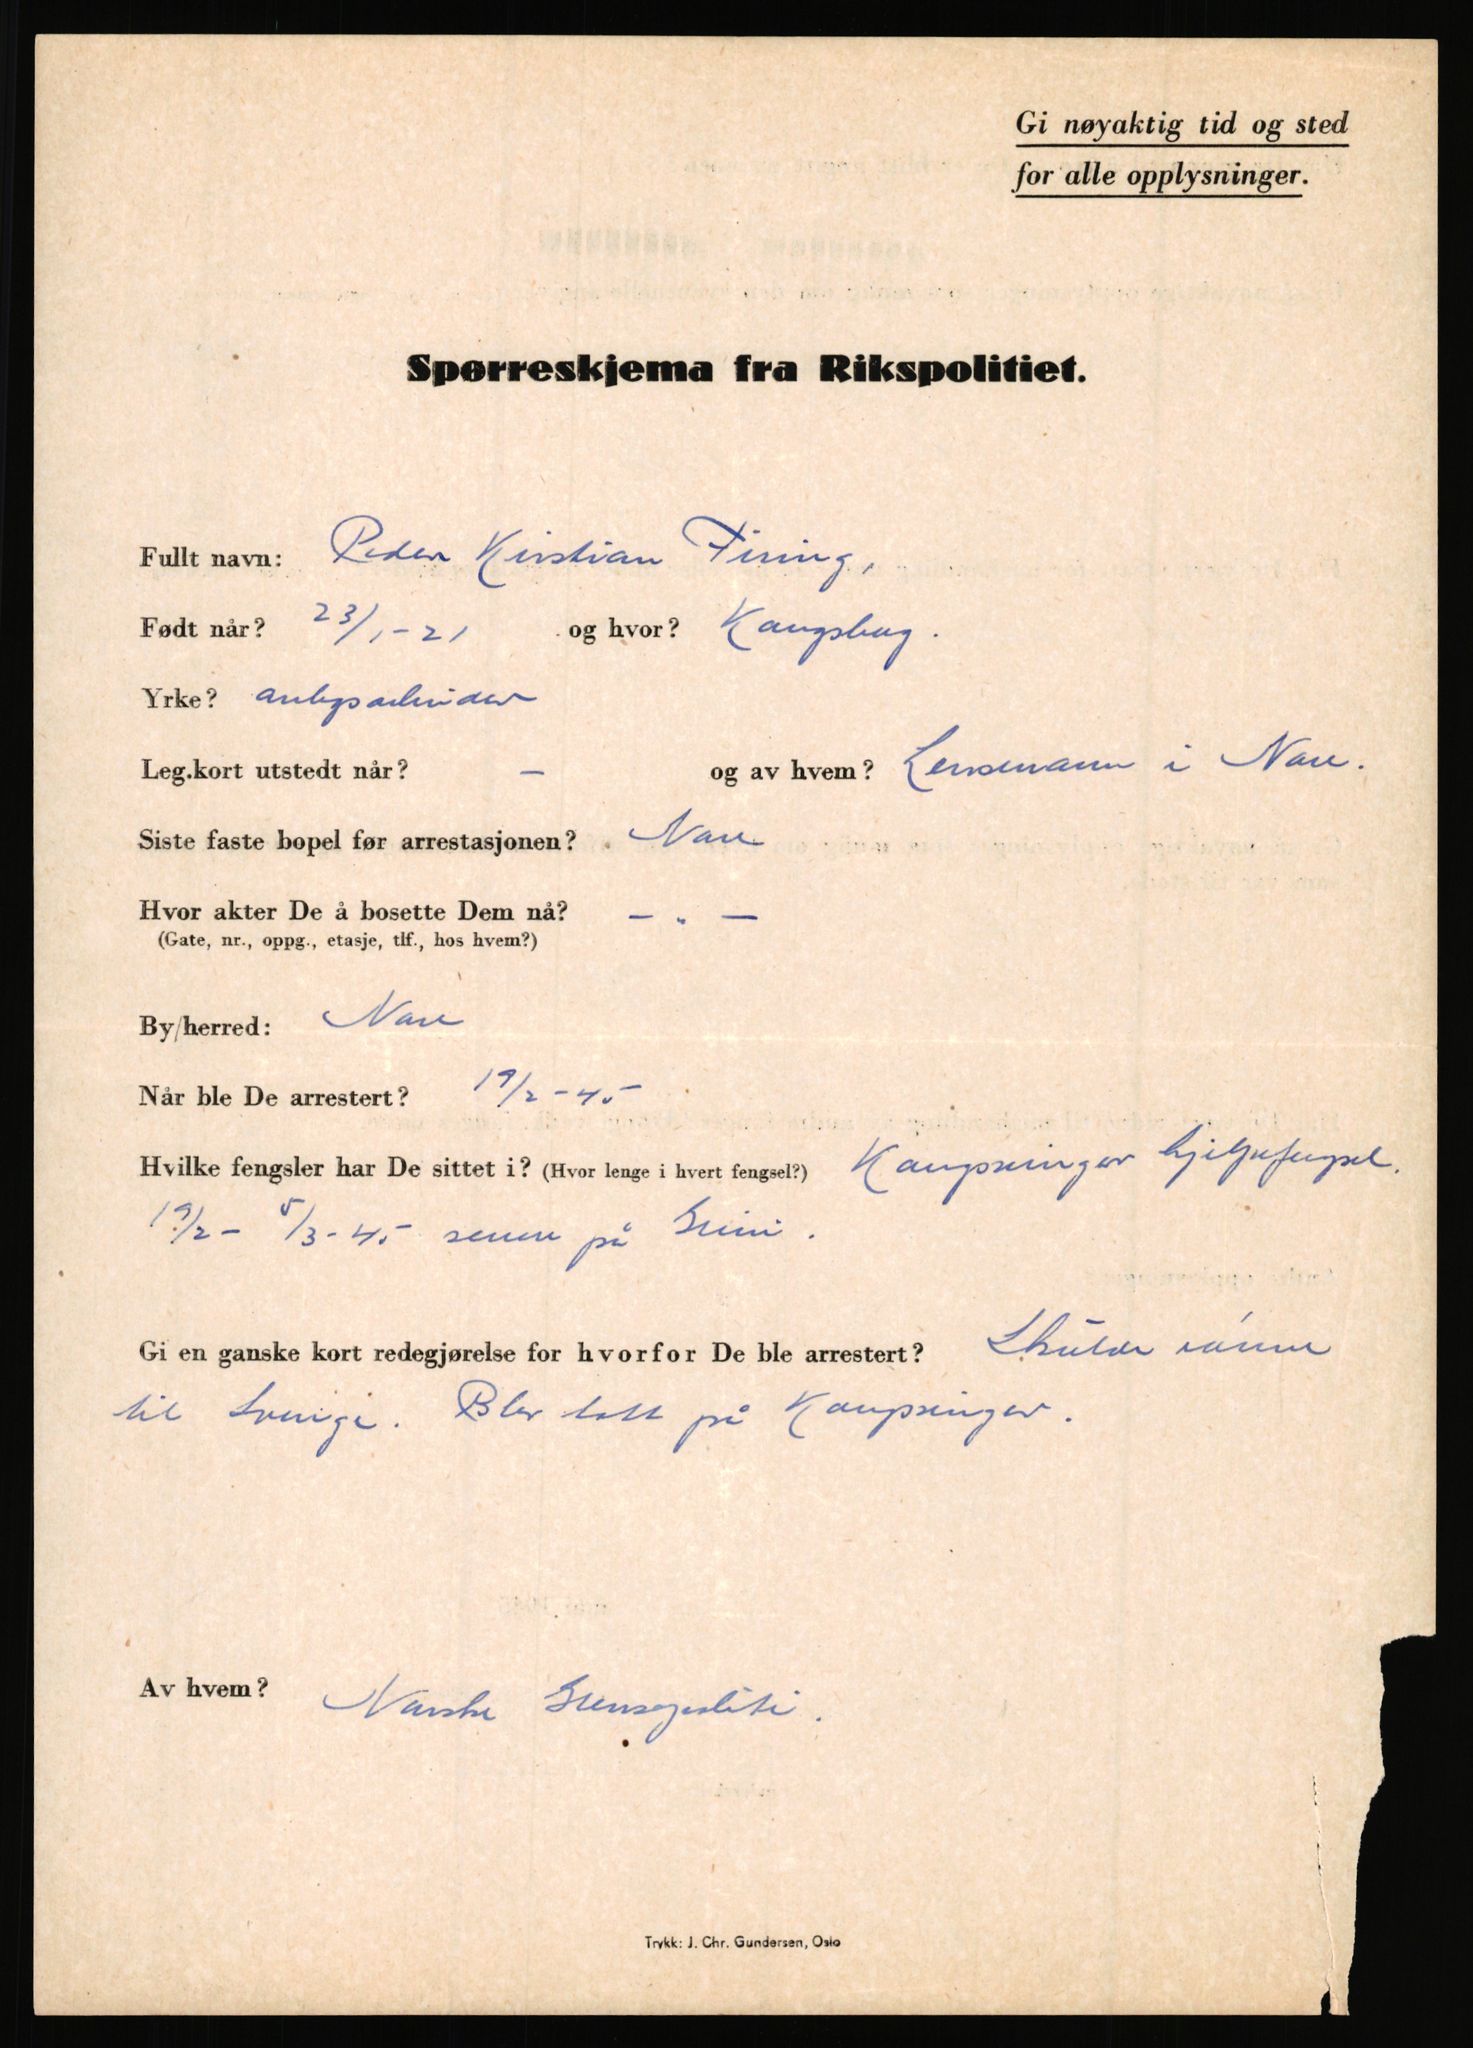 Gi nøyaktig tid og sted
for alle opplysninger.
Spørreskjema fra Rikspolitiet.
Fullt navn: Peder Kirstian Firing,
Født når? 23/1-21 og hvor? Kongsberg.
Yrke? anlegsarbeider
Leg.kort utstedt når? — og av hvem? Lensmann i Nore.
Siste faste bopel før arrestasjonen? Nore
Hvor akter De å bosette Dem nå? — . —
(Gate, nr., oppg., etasje, tlf., hos hvem?)
By/herred: Nore
Når ble De arrestert? 19/2-45
Hvilke fengsler har De sittet i? (Hvor lenge i hvert fengsel?) Kongsvinger hjelpefengsel.
19/2- 5/3-45 senere på Grini.
Gi en ganske kort redegjørelse for hvorfor De ble arrestert? Skulde rømme
til Sverige. Blev tatt på Kongsvinger.
Av hvem? Norske Grensepoliti.
Trykk: J. Chr. Gundersen, Oslo